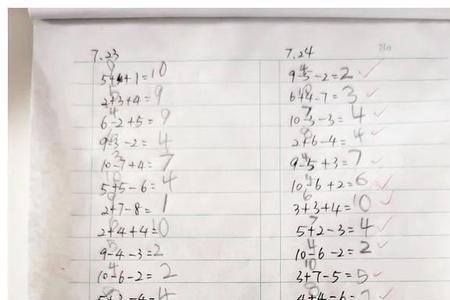 7.23
5+4+1=10
2+3+4=9
6-2+5=9
9-3-2=4
10-7+4=7
5+5-6=4
2+7-8=1
2+4+4=10
9-4-3=2
10-6-2=2
7.24
No
9-5-2=2
6+4-7=3
10-3-3=4
2+6-4=4
9-5+3=7
10-6+2=6
3+3+4=10
5+2-3=4
10-6-2=2
3+7-5=5